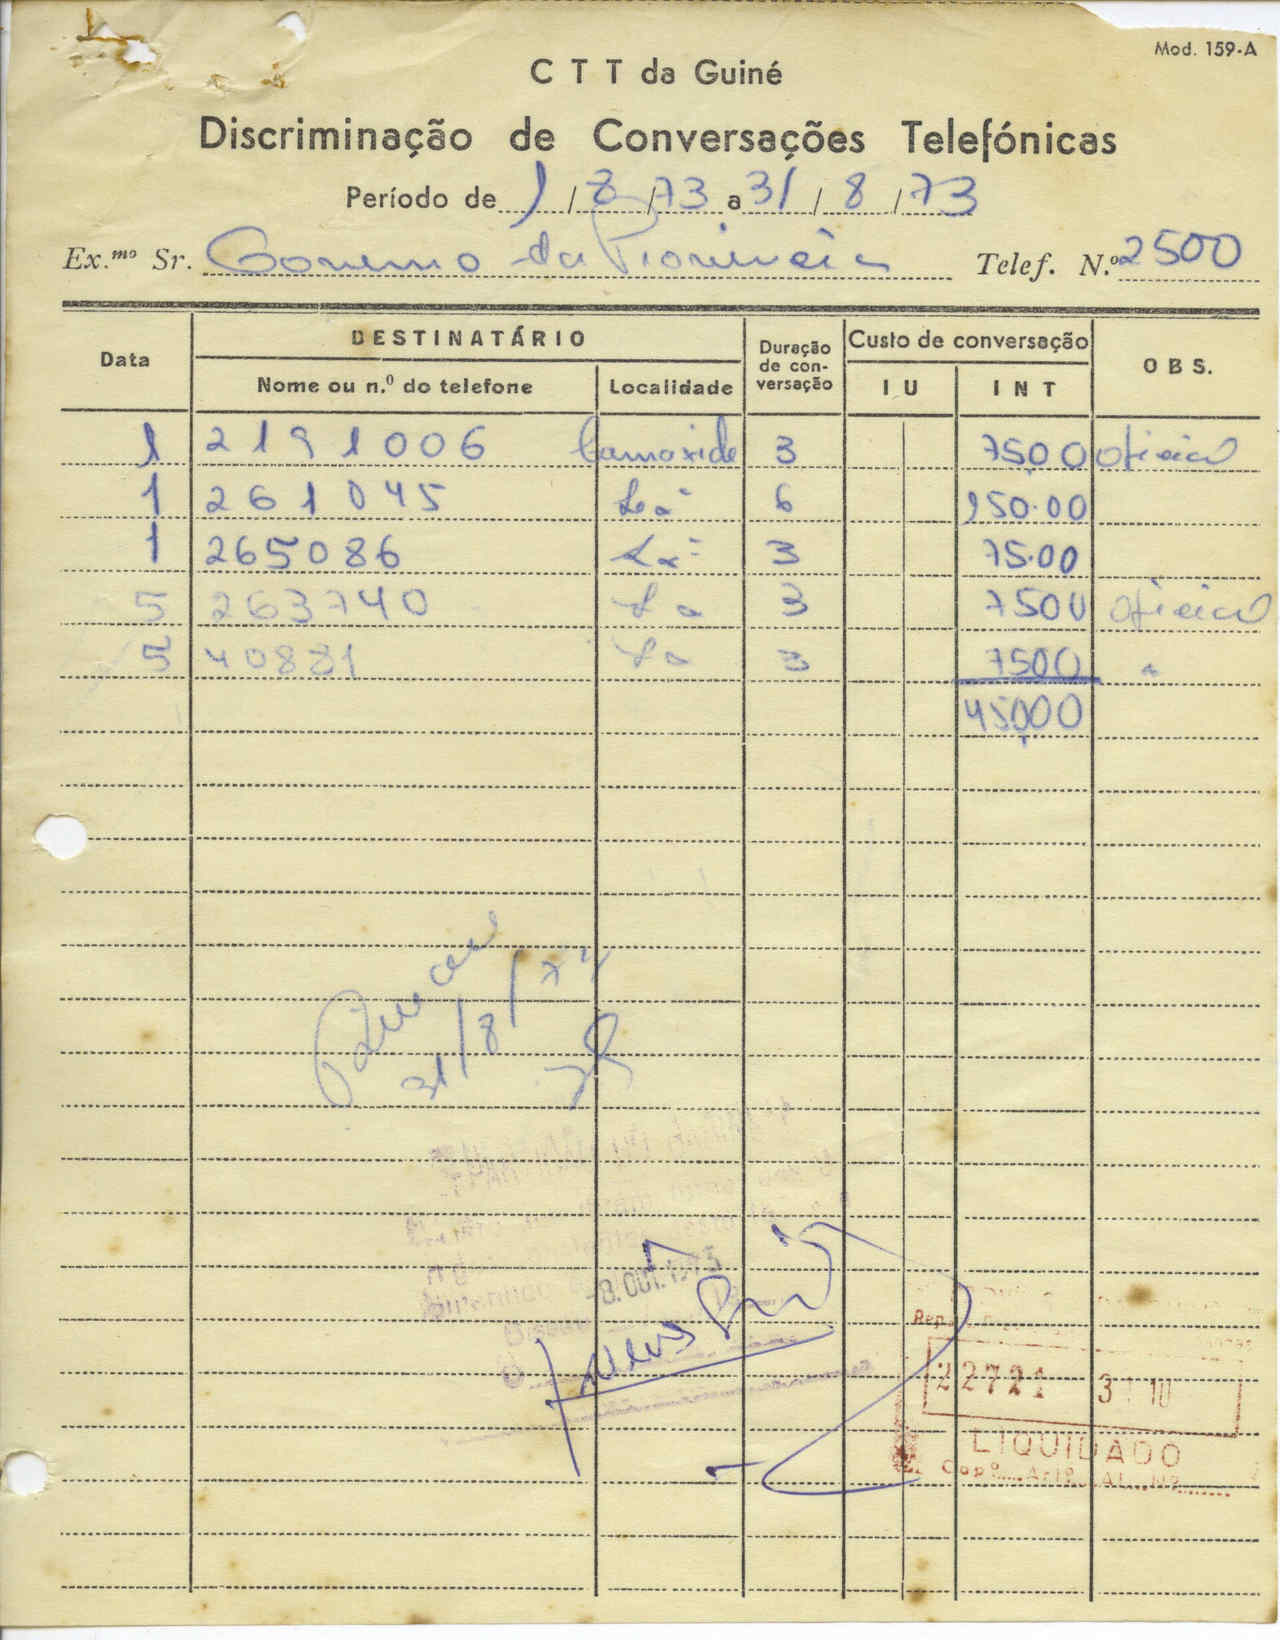 Mod. 159-A
C T T da Guiné
Discriminação de Conversações Telefónicas
Período de 1/8/73 a 31/8/73
Ex.mo Sr. Governo da Província Telef. N.º 2500
Data DESTINATÁRIO Duração de conversação Custo de conversação OBS.
Nome ou n.º do telefone Localidade I U I N T
1 2191006 Carnaxide 3 75.00 oficial
1 261045 Lxª 6 150.00
1 265086 Lxª 3 75.00
5 263740 Lxª 3 7500 oficial
5 40881 Lxª 3 7500 "
45000
31/8/73
-8.OUT.1973
Rep.
22721 31 10
LIQUIDADO
Capº Artº Al. Nº